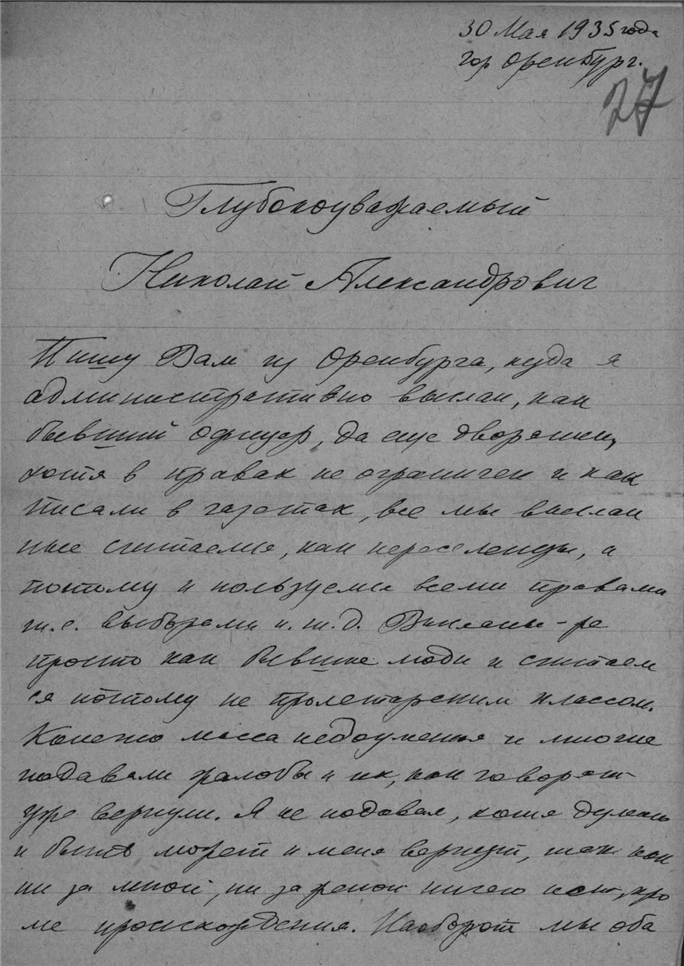 30 Мая 1935 года
гор Оренбург.
27
Глубокоуважаемый
Николай Александрович
Пишу Вам из Оренбурга, куда я
административно выслан, как
бывший офицер, да еще дворянин,
хотя в правах не ограничен и как
писали в газетах, все мы выслан
ные считаемся, как переселенцы, а
потому и пользуемся всеми правами
т.е. выборами и т.д. Высланы-же
просто как бывшие люди и считаем
ся поэтому не пролетарским классом.
Конечно масса недоуменья и многие
подавали жалобы и их, как говорят
уже вернули. Я не подавал, хотя думаю
и быть может и меня вернут, так как
ни за мной, ни за женой ничего нет, кро
ме происхождения. Наоборот мы оба